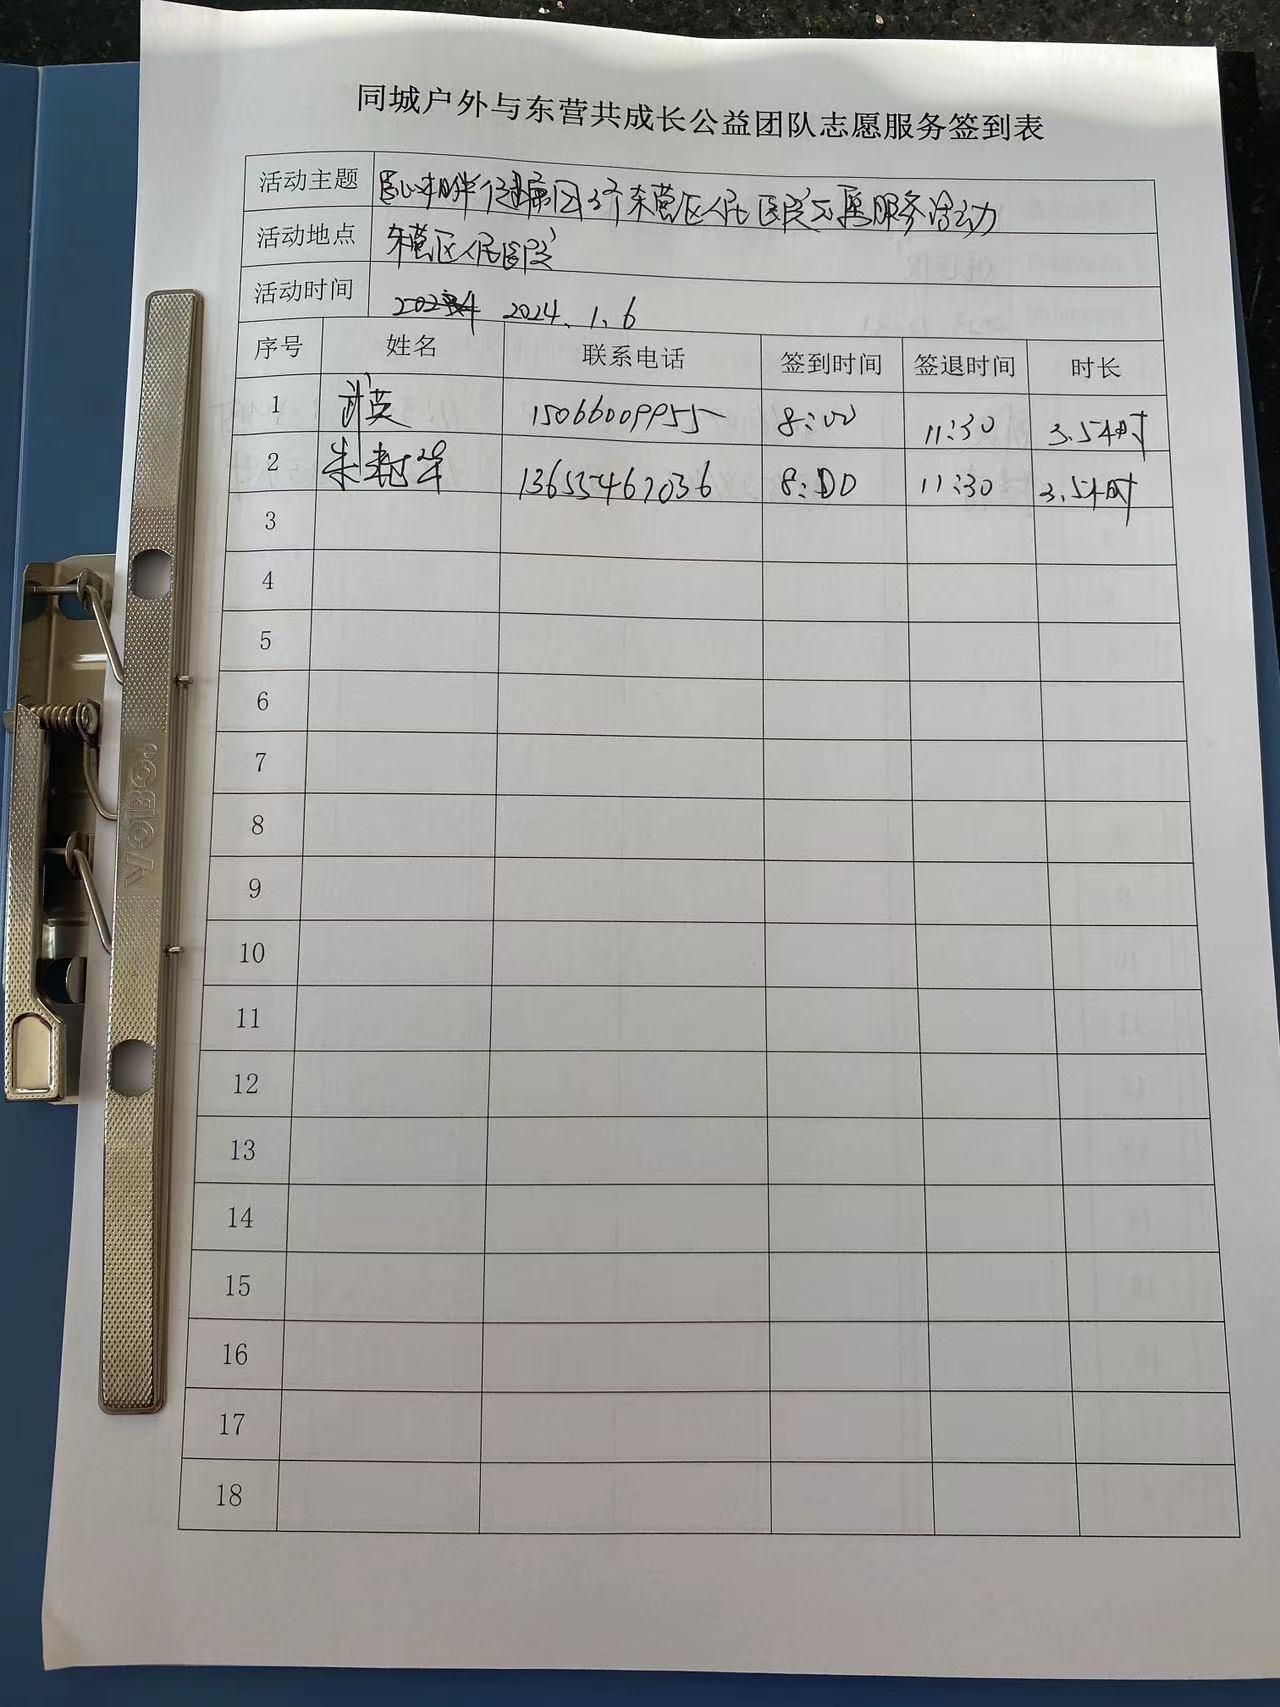 同城户外与东营共成长公益团队志愿服务签到表
活动主题 医心相伴 东营区人民医院志愿服务活动
活动地点 东营区人民医院
活动时间 2024.1.6
序号 姓名 联系电话 签到时间 签退时间 时长
1 武英 15066009955 8:00 11:30 3.5小时
2 朱 13655467036 8:00 11:30 3.5小时
3
4
5
6
7
8
9
10
11
12
13
14
15
16
17
18